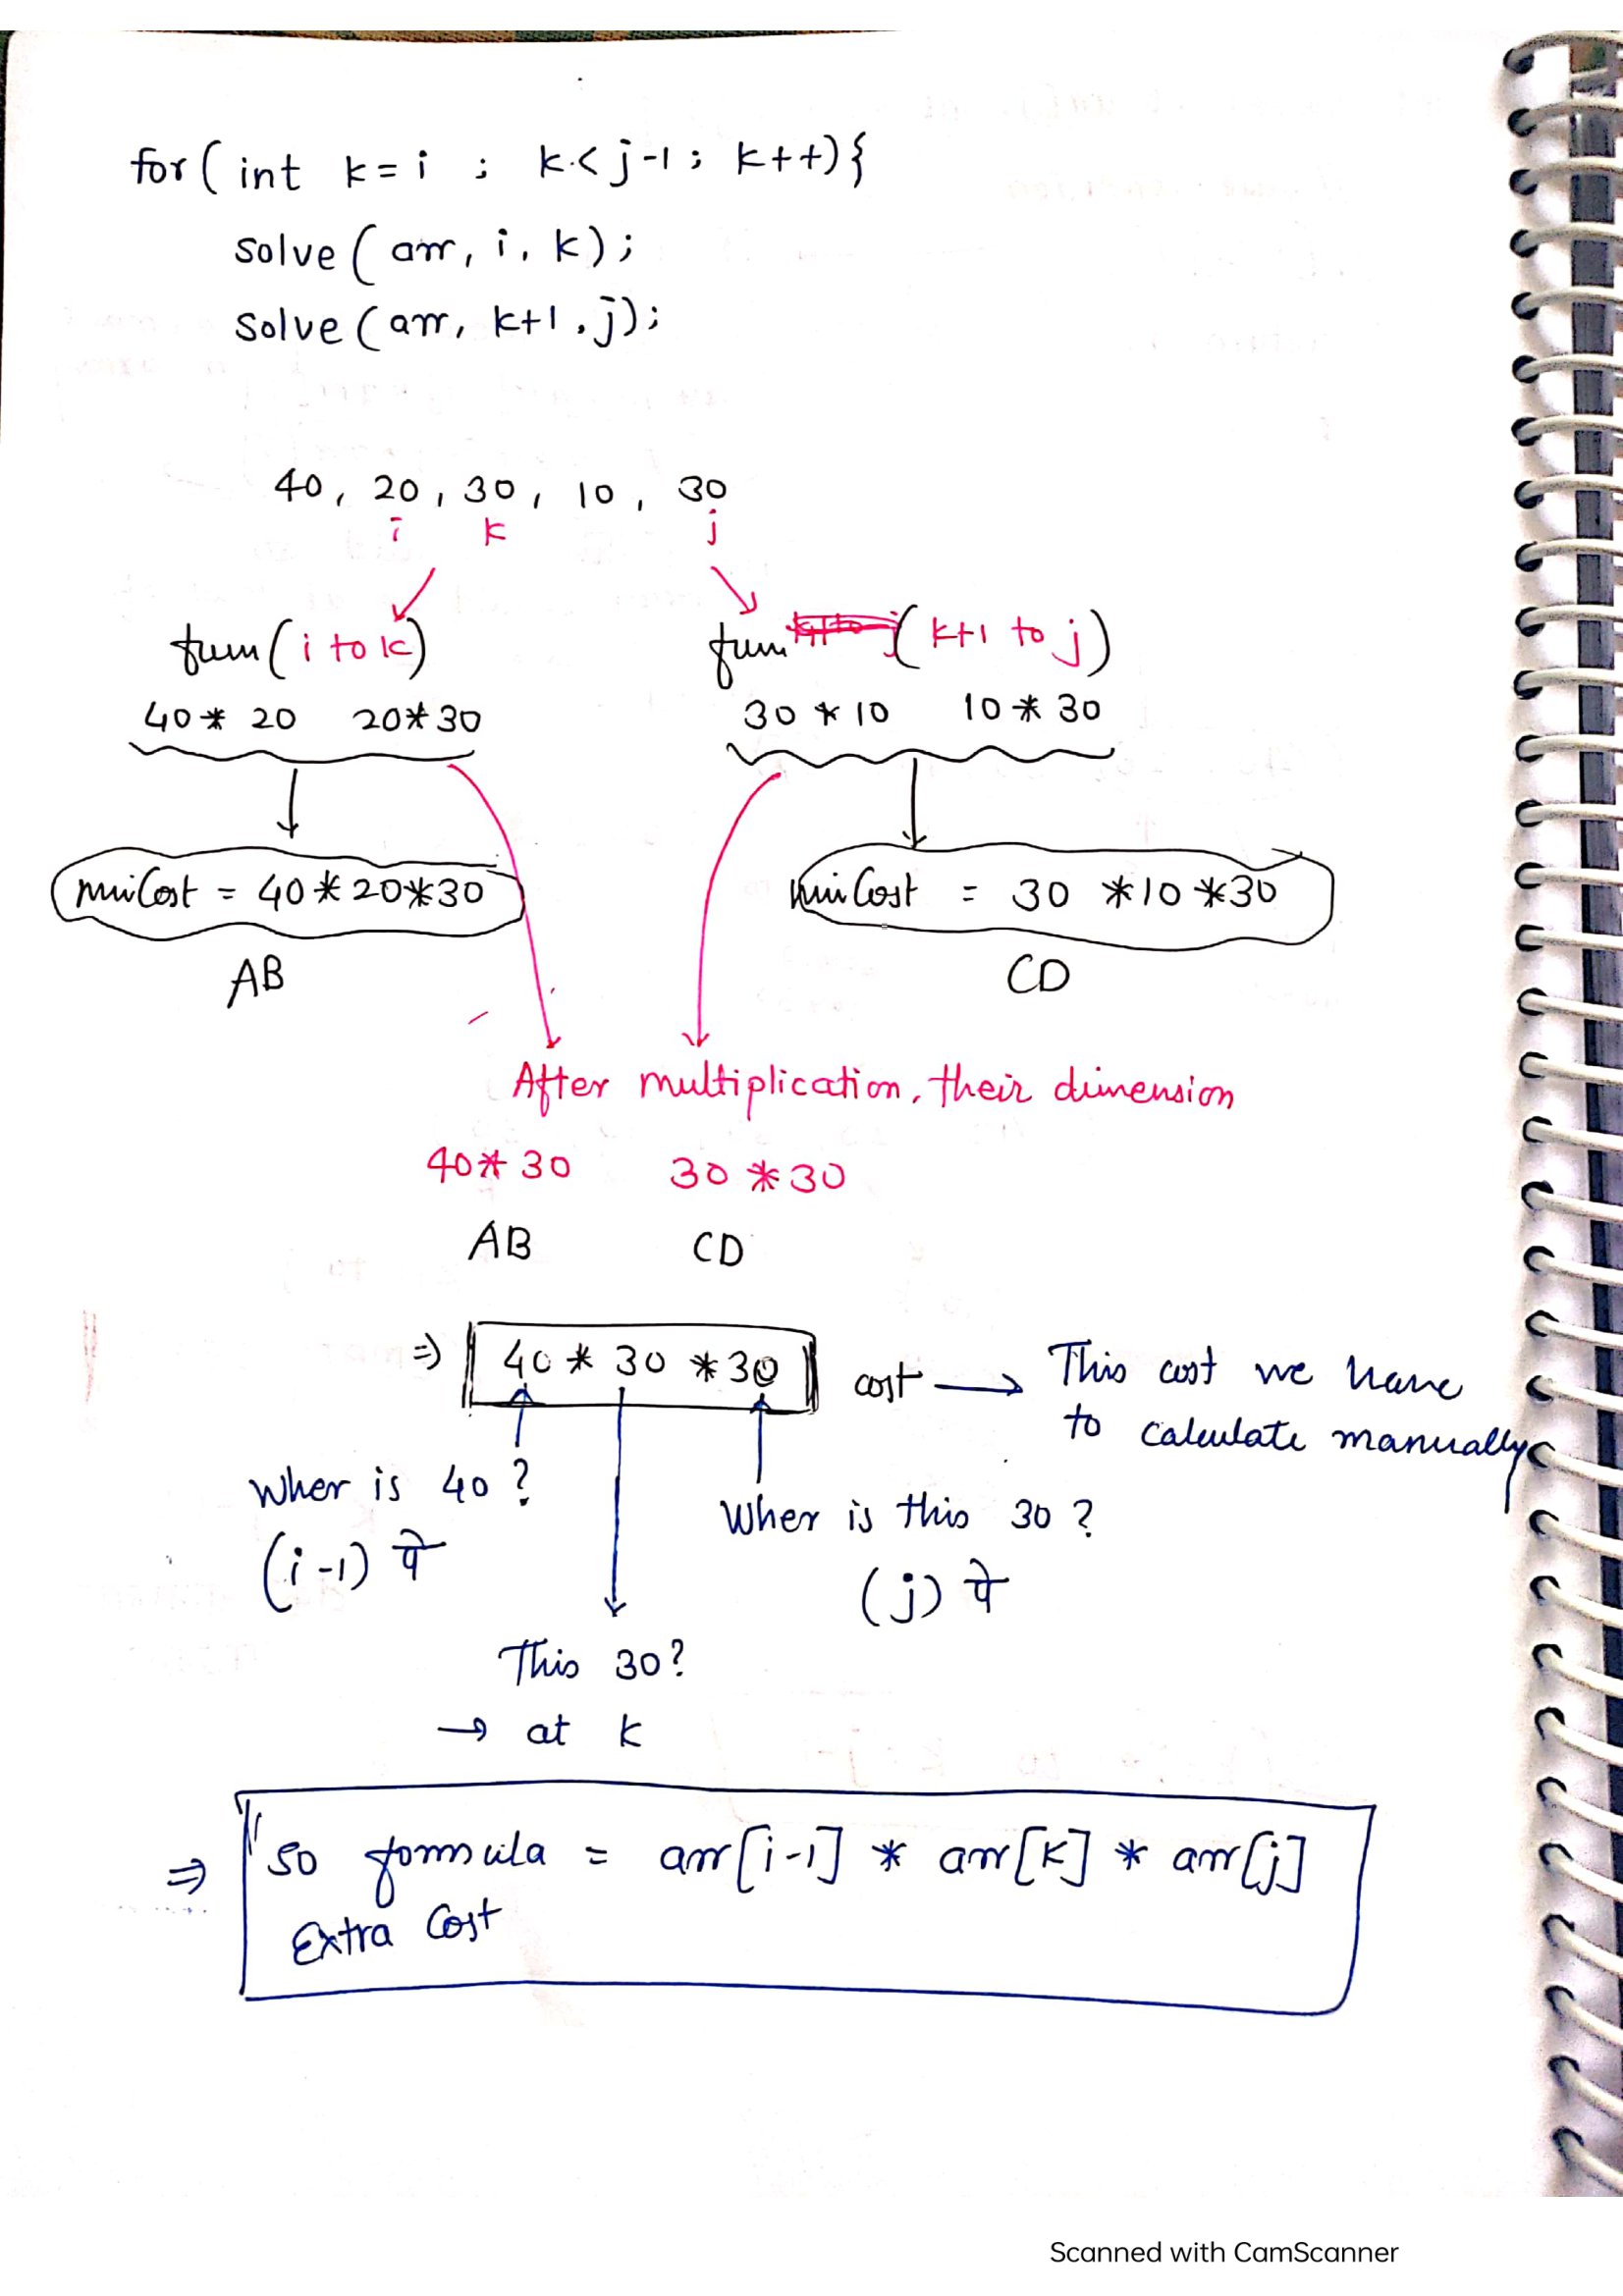 for( int k = i ; k < j-1 ; k++){
solve( arr, i, k );
solve( arr, k+1, j);
40, 20, 30, 10, 30
i k j
fun( i to k) fun( k+1 to j)
40 * 20 20*30 30 * 10 10 * 30
miniCost = 40*20*30 miniCost = 30 *10 *30
AB CD
After multiplication, their dimension
40* 30 30 *30
AB CD
⇒ 40 * 30 *30 cost → This cost we have
to calculate manually
Wher is 40 ?
(i-1) पे
Wher is this 30 ?
(j) पे
This 30?
→ at k
⇒ So formula = arr[i-1] * arr[k] * arr[j]
Extra Cost
Scanned with CamScanner